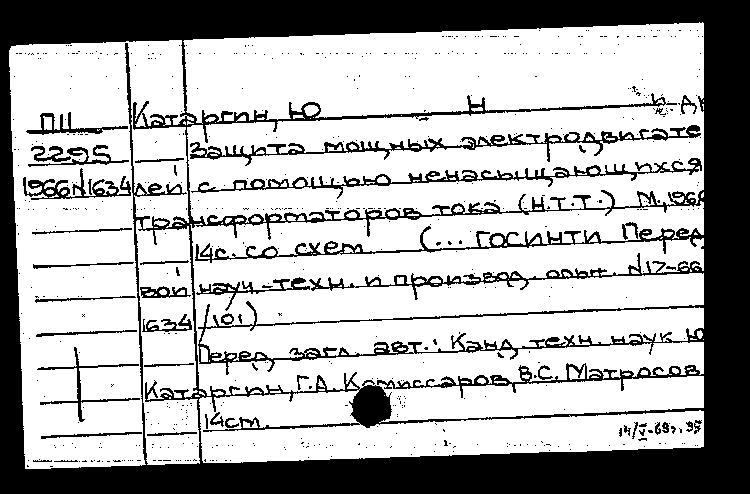 ПII Катаргин, Ю Н и др
2295 Защита мощных электродвигате
1966N1634 лей с помощью ненасыщающихся
трансформаторов тока (Н.Т.Т.) М, 1966
14с. со схем (... ГОСИНТИ Перед
вой науч.-техн. и производ. опыт. N17-66
1634/101)
Перед загл. авт.: Канд. техн. наук Ю
Катаргин, Г.А. Комиссаров, В.С. Матросов
14см.
14/V-69г.